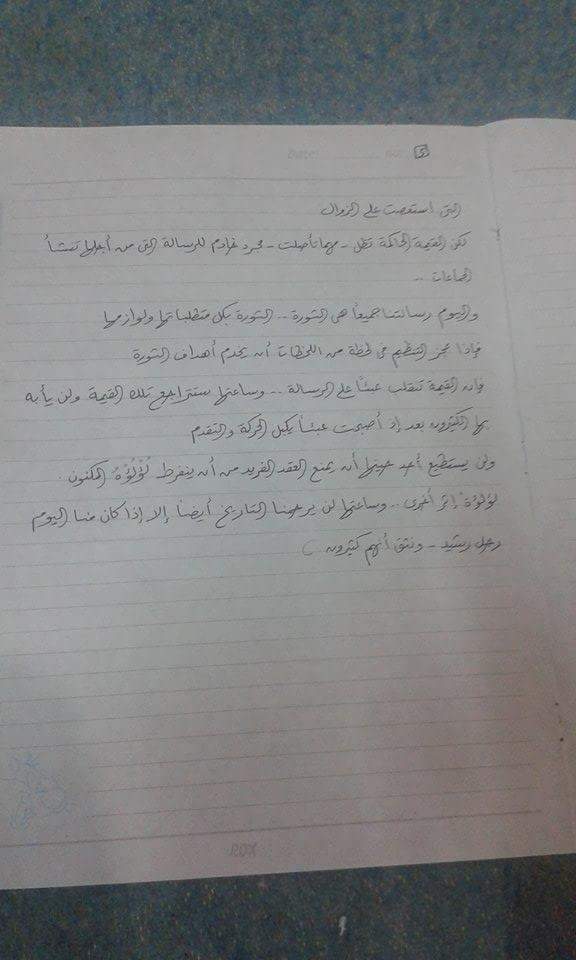 5
التى استعصت على الزوال
لكن القيمة الحاكمة تظل - مهما تأصلت - مجرد خادم للرسالة التى من أجلها تنشأ
الجماعات ..
واليوم رسالتنا جميعاً هى الثورة .. الثورة بكل متطلباتها ولوازمها
فإذا عجز التنظيم فى لحظة من اللحظات أن يخدم أهداف الثورة
فإن القيمة تنقلب عبئاً على الرسالة .. وساعتها ستتراجع تلك القيمة ولن يأبه
بها الكثيرون بعد إذ أصبحت عبئاً يكبل الحركة والتقدم
ولن يستطيع أحد حينها أن يمنع العقد الفريد من أن ينفرط لُؤْلُؤُهُ المكنون
لؤلؤة إثر أخرى .. وساعتها لن يرحمنا التاريخ أيضاً إلا إذا كان منا اليوم
رجل رشيد - ونثق أنهم كثيرون )